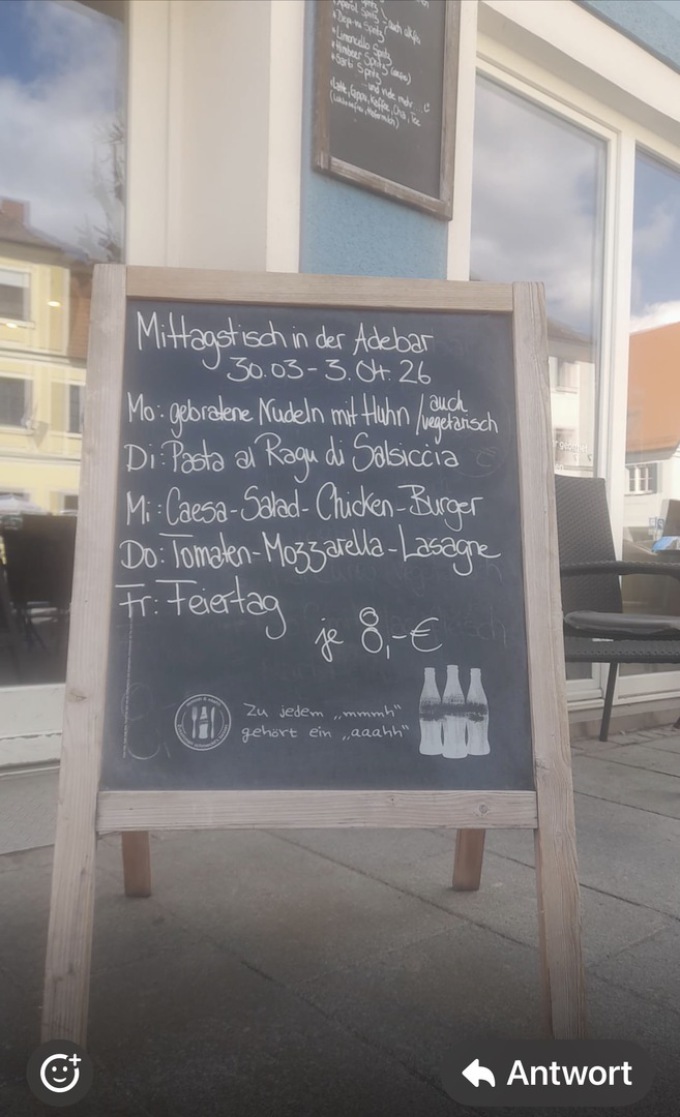 Spritz
Limoncello Spritz
Himbeer Spritz
Sarti Spritz
und viele mehr...
Latte, Cappu, Kaffee, Chai, Tee
Mittagstisch in der Adebar
30.03 - 3.04.26
Mo: gebratene Nudeln mit Huhn / auch vegetarisch
Di: Pasta al Ragu di Salsiccia
Mi: Caesa-Salad-Chicken-Burger
Do: Tomaten-Mozzarella-Lasagne
Fr: Feiertag
je 8,-€
Zu jedem „mmmh“
gehört ein „aaahh“
Antwort